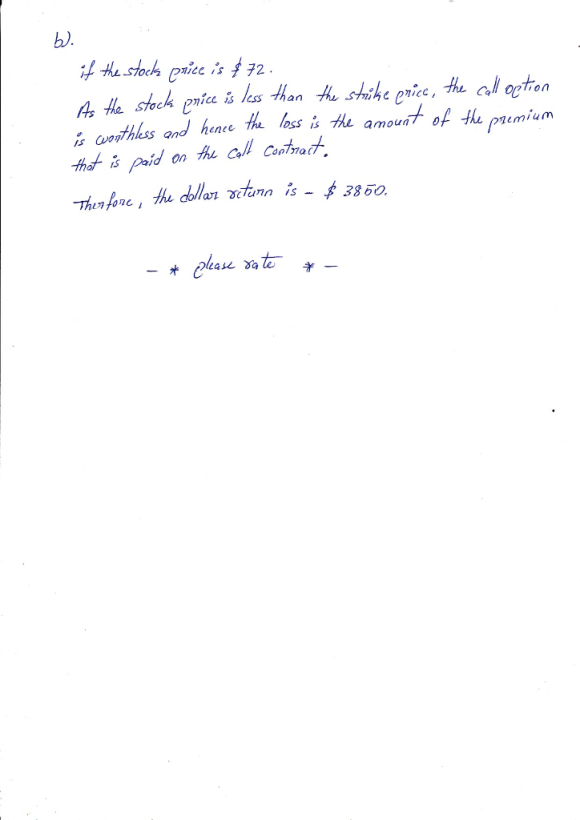 b).
if the stock price is $72.
As the stock price is less than the strike price, the call option
is worthless and hence the loss is the amount of the premium
that is paid on the call contract.
Therefore, the dollar return is - $3850.
- * please rate * -